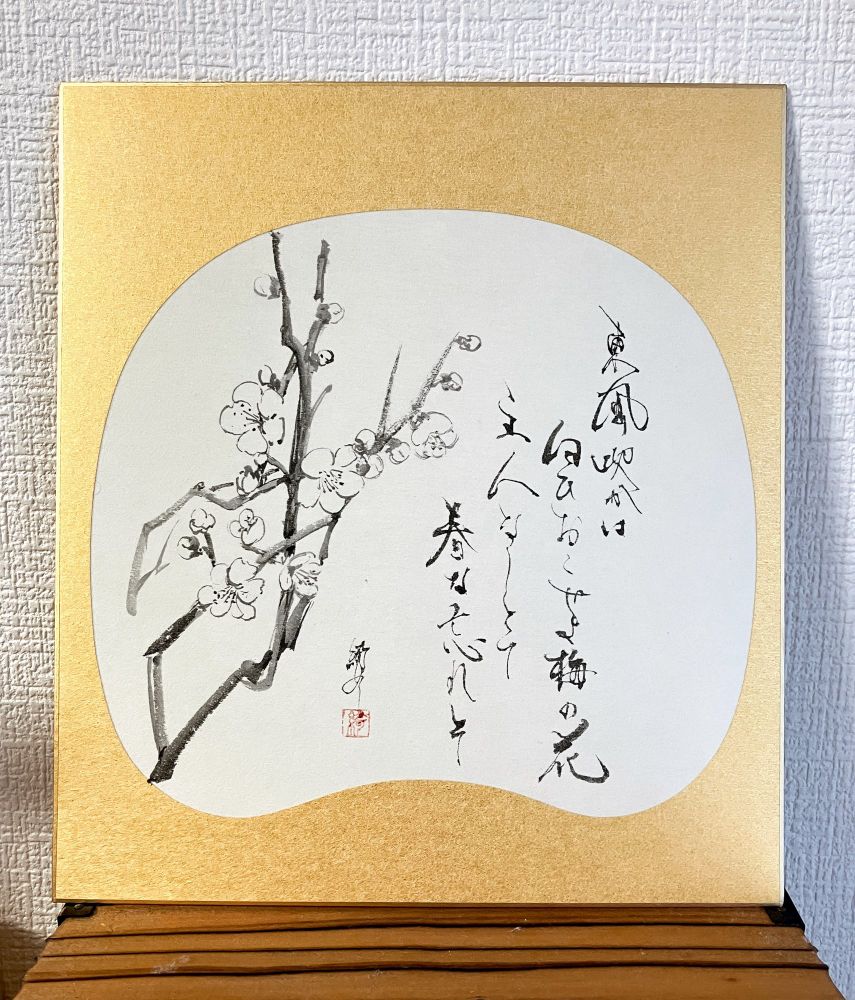 東風吹かは
匂ひおこせよ梅の花
主人なしとて
春な忘れそ